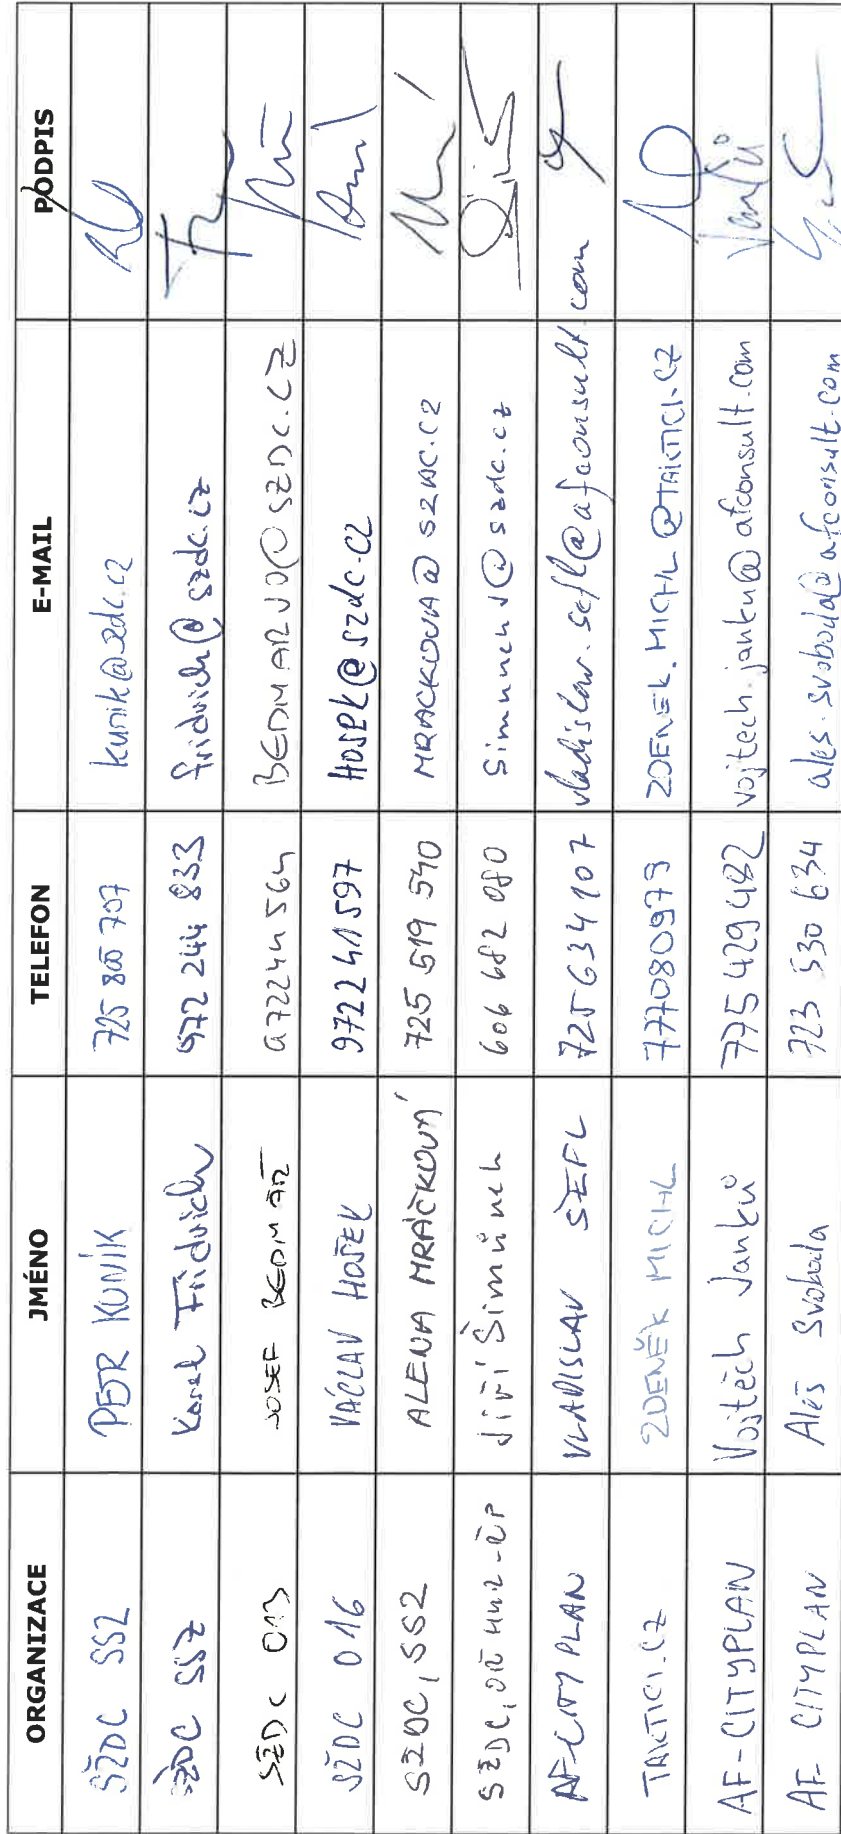 ORGANIZACE JMÉNO TELEFON E-MAIL PODPIS
SŽDC SSZ PETR KUNÍK 725 800 707 kunik@szdc.cz
SŽDC SSZ Karel Fridrich 972 244 833 fridrich@szdc.cz
SŽDC O13 JOSEF BEDNÁŘ 972244564 BEDNARJO@SZDC.CZ
SŽDC O16 VÁCLAV HOŠEK 972241597 HOSEK@szdc.cz
SŽDC, SSZ ALENA MRÁČKOVÁ 725 519 540 MRACKOVA@SZDC.CZ
SŽDC, Jiří Šimůnek 606 682 080 Simunekj@szdc.cz
AF-CITYPLAN VLADISLAV ŠEFL 725634107 vladislav.sefl@afconsult.com
TAKTICI.CZ ZDENĚK MICHL 777080979 ZDENEK.MICHL@TAKTICI.CZ
AF-CITYPLAN Vojtěch Janků 775 429 482 vojtech.janku@afconsult.com
AF-CITYPLAN Aleš Svoboda 723 530 634 ales.svoboda@afconsult.com